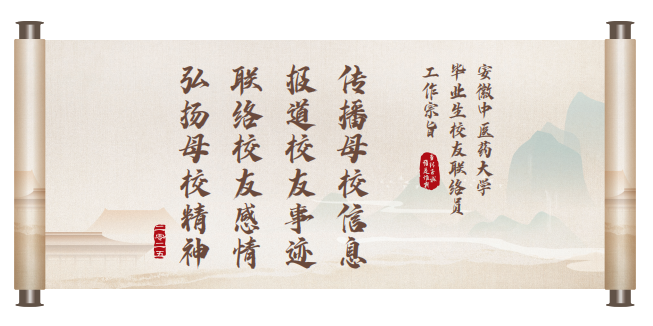 安徽中医药大学
毕业生校友联络员
工作宗旨
传播母校信息
报道校友事迹
联络校友感情
弘扬母校精神
二零二五